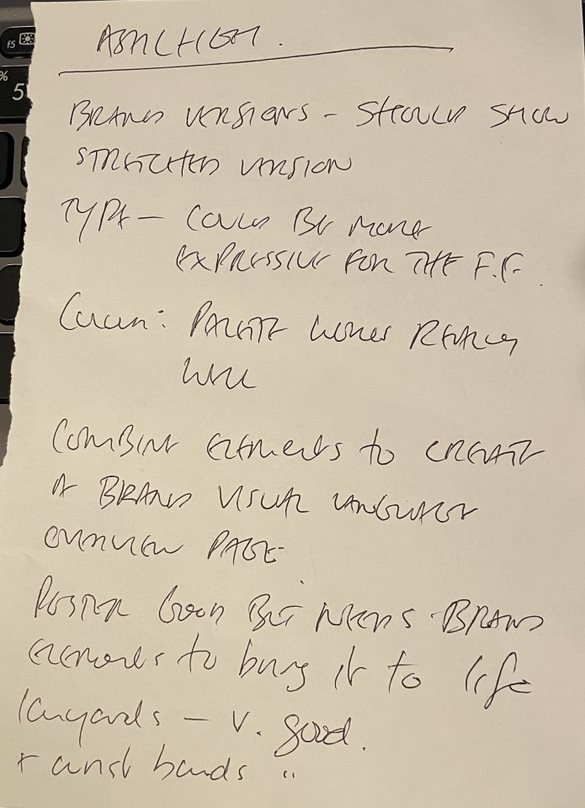 BRAND VERSIONS – SHOULD SHOW
STRETCHED VERSION
TYPE – COULD BE MORE
EXPRESSIVE FOR THE F.F.
COLOUR: PALETTE WORKS REALLY
WELL
COMBINE ELEMENTS TO CREATE
A BRAND VISUAL LANGUAGE
OVERVIEW PAGE
POSTER GOOD BUT NEEDS BRAND
ELEMENTS to bring it to life
lanyards – v. good.
+ wrist bands "
f5
%
5